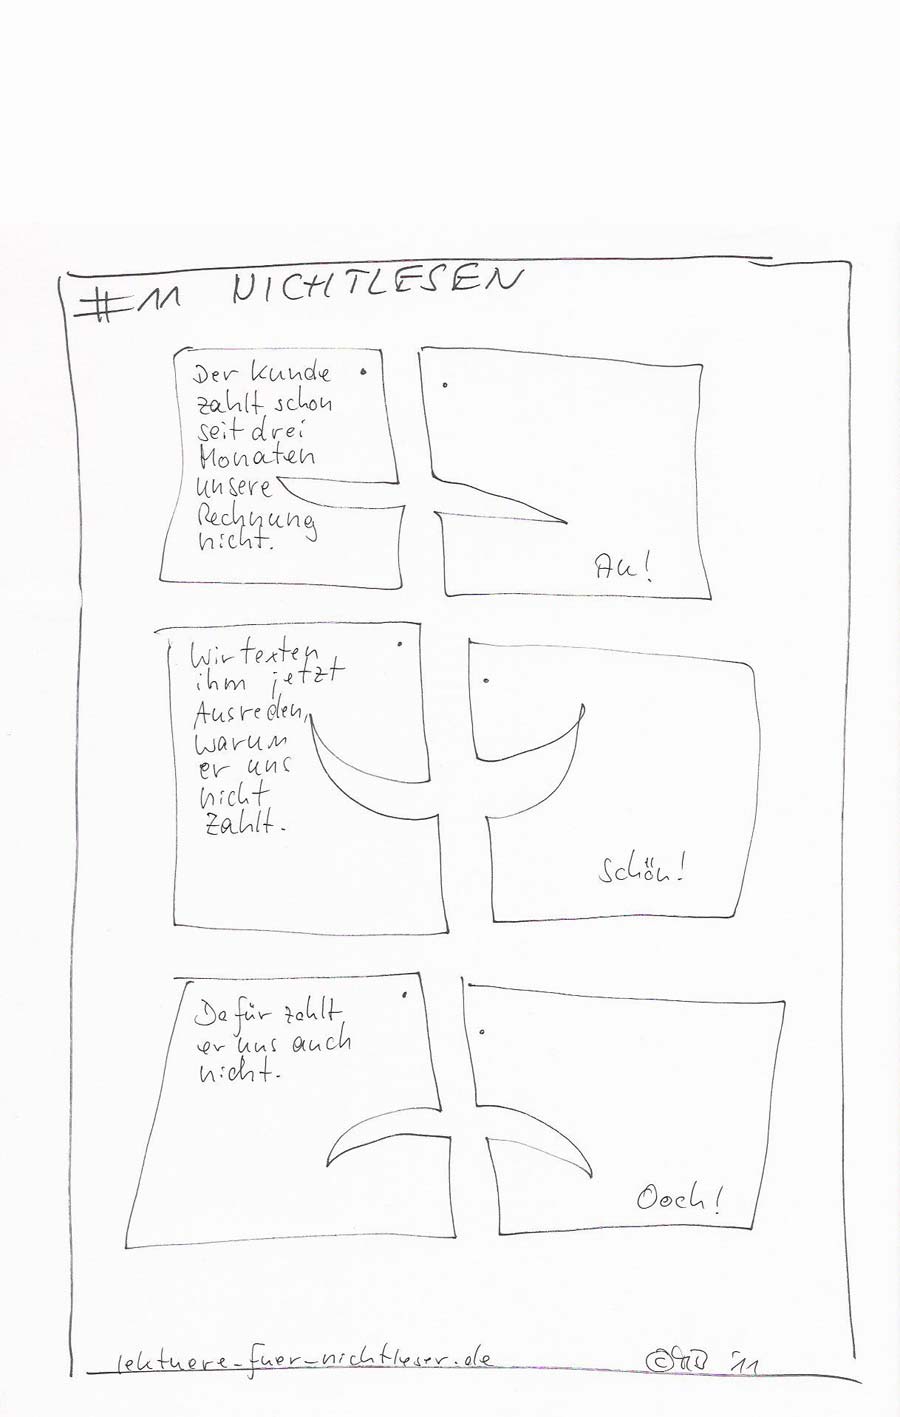 #11 NICHTLESEN
Der Kunde
zahlt schon
seit drei
Monaten
unsere
Rechnung
nicht.
Au!
Wir texten
ihm jetzt
Ausreden,
warum
er uns
nicht
zahlt.
Schön!
Dafür zahlt
er uns auch
nicht.
Ooch!
lektuere-fuer-nichtleser.de
© '11